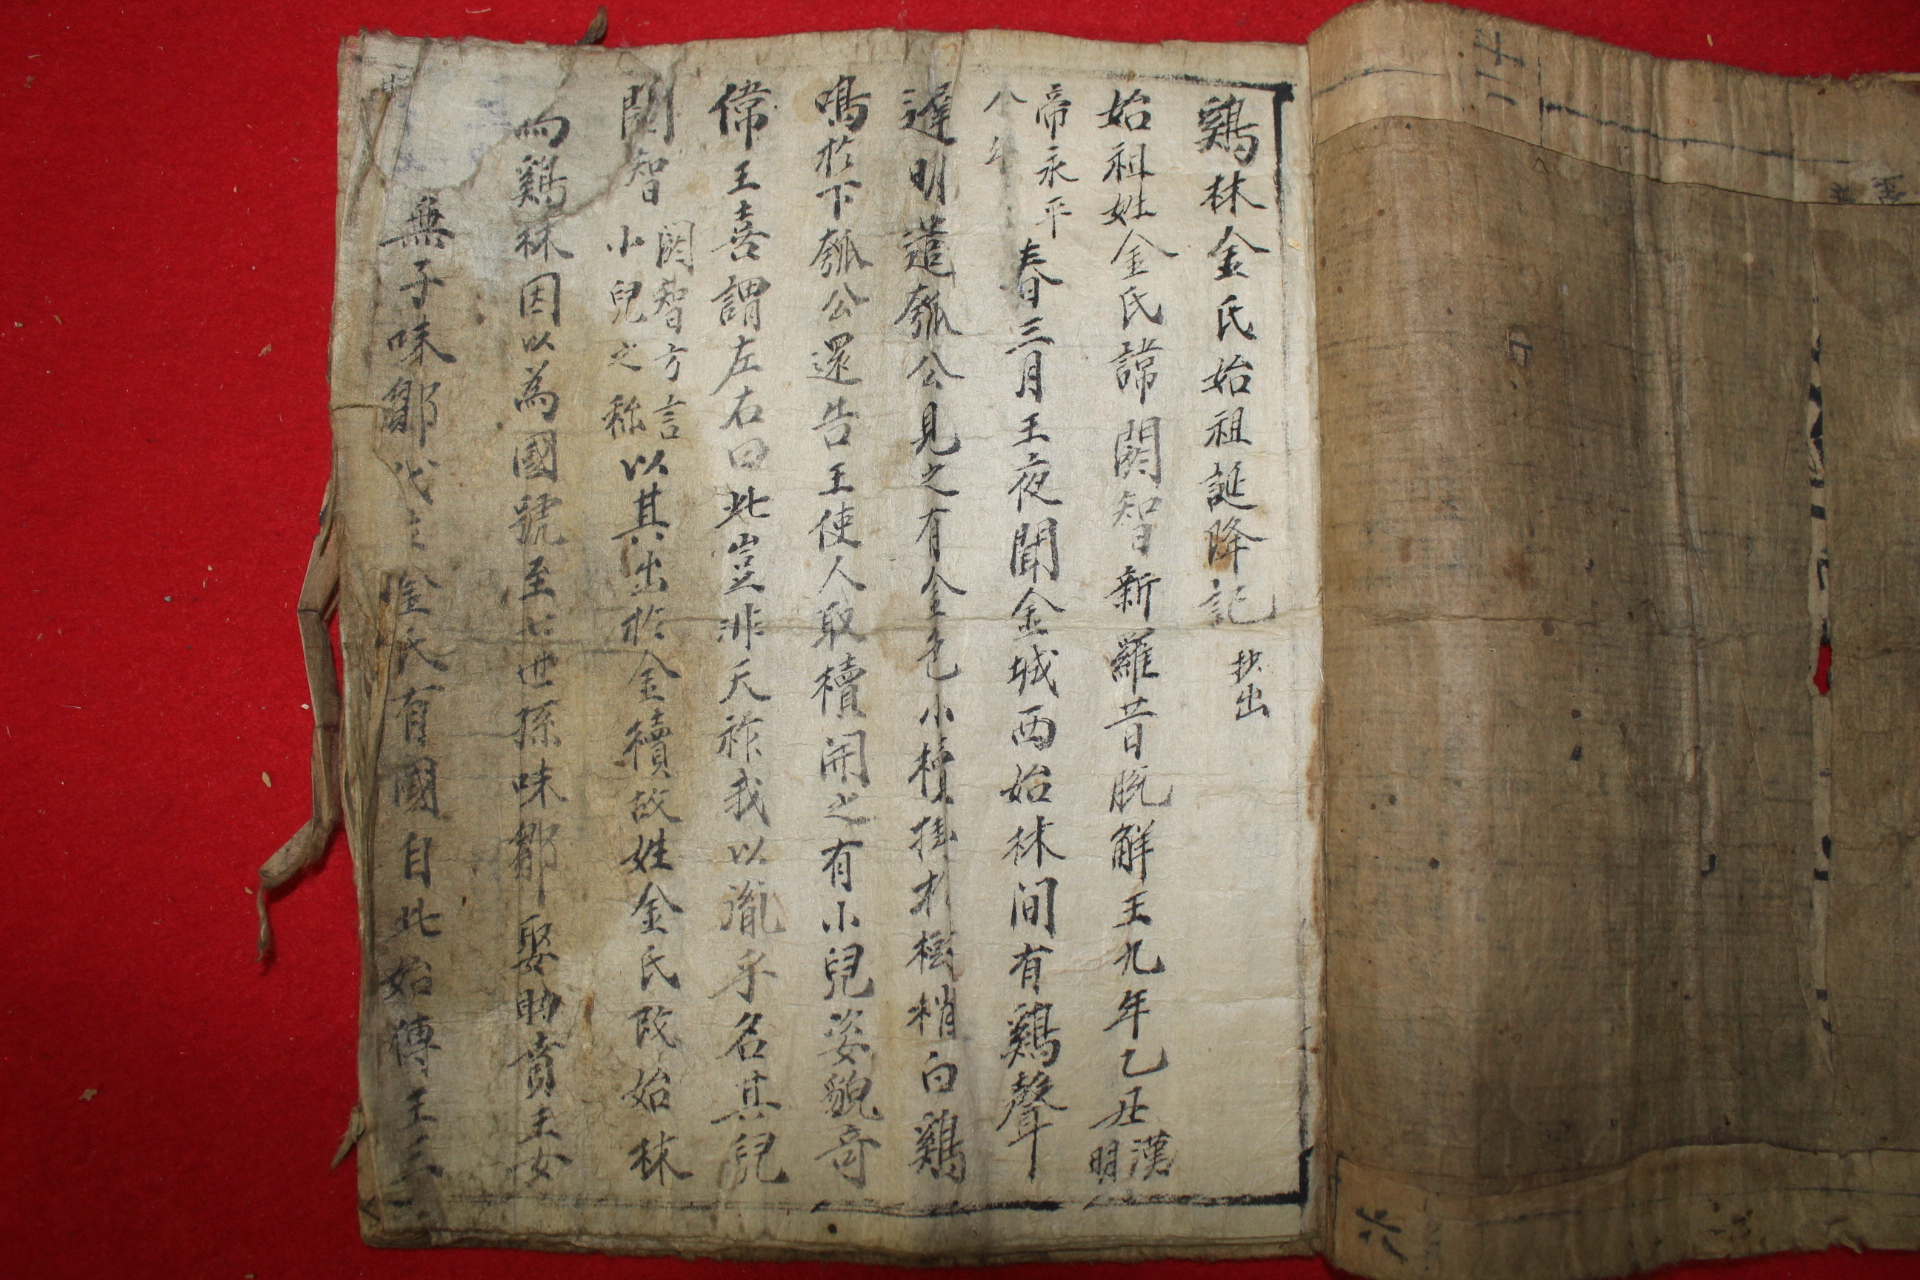 鷄林金氏始祖誕降記 抄出
始祖姓金氏諱閼智新羅昔脫解王九年乙丑 漢明
帝永平八年 春三月王夜聞金城西始林间有鷄聲
遲明遣瓠公見之有金色小櫝掛於樹梢白鷄
鳴於下瓠公還告王使人取櫝開之有小兒姿貌奇
偉王喜謂左右曰此豈非天祚我以胤乎名其兒
閼智 閼智方言小兒之称 以其出於金櫝故姓金氏改始林
為鷄林因以為國號至七世孫味鄒娶助賁王女
無子味鄒代立金氏有國自此始傳王三
十二
六